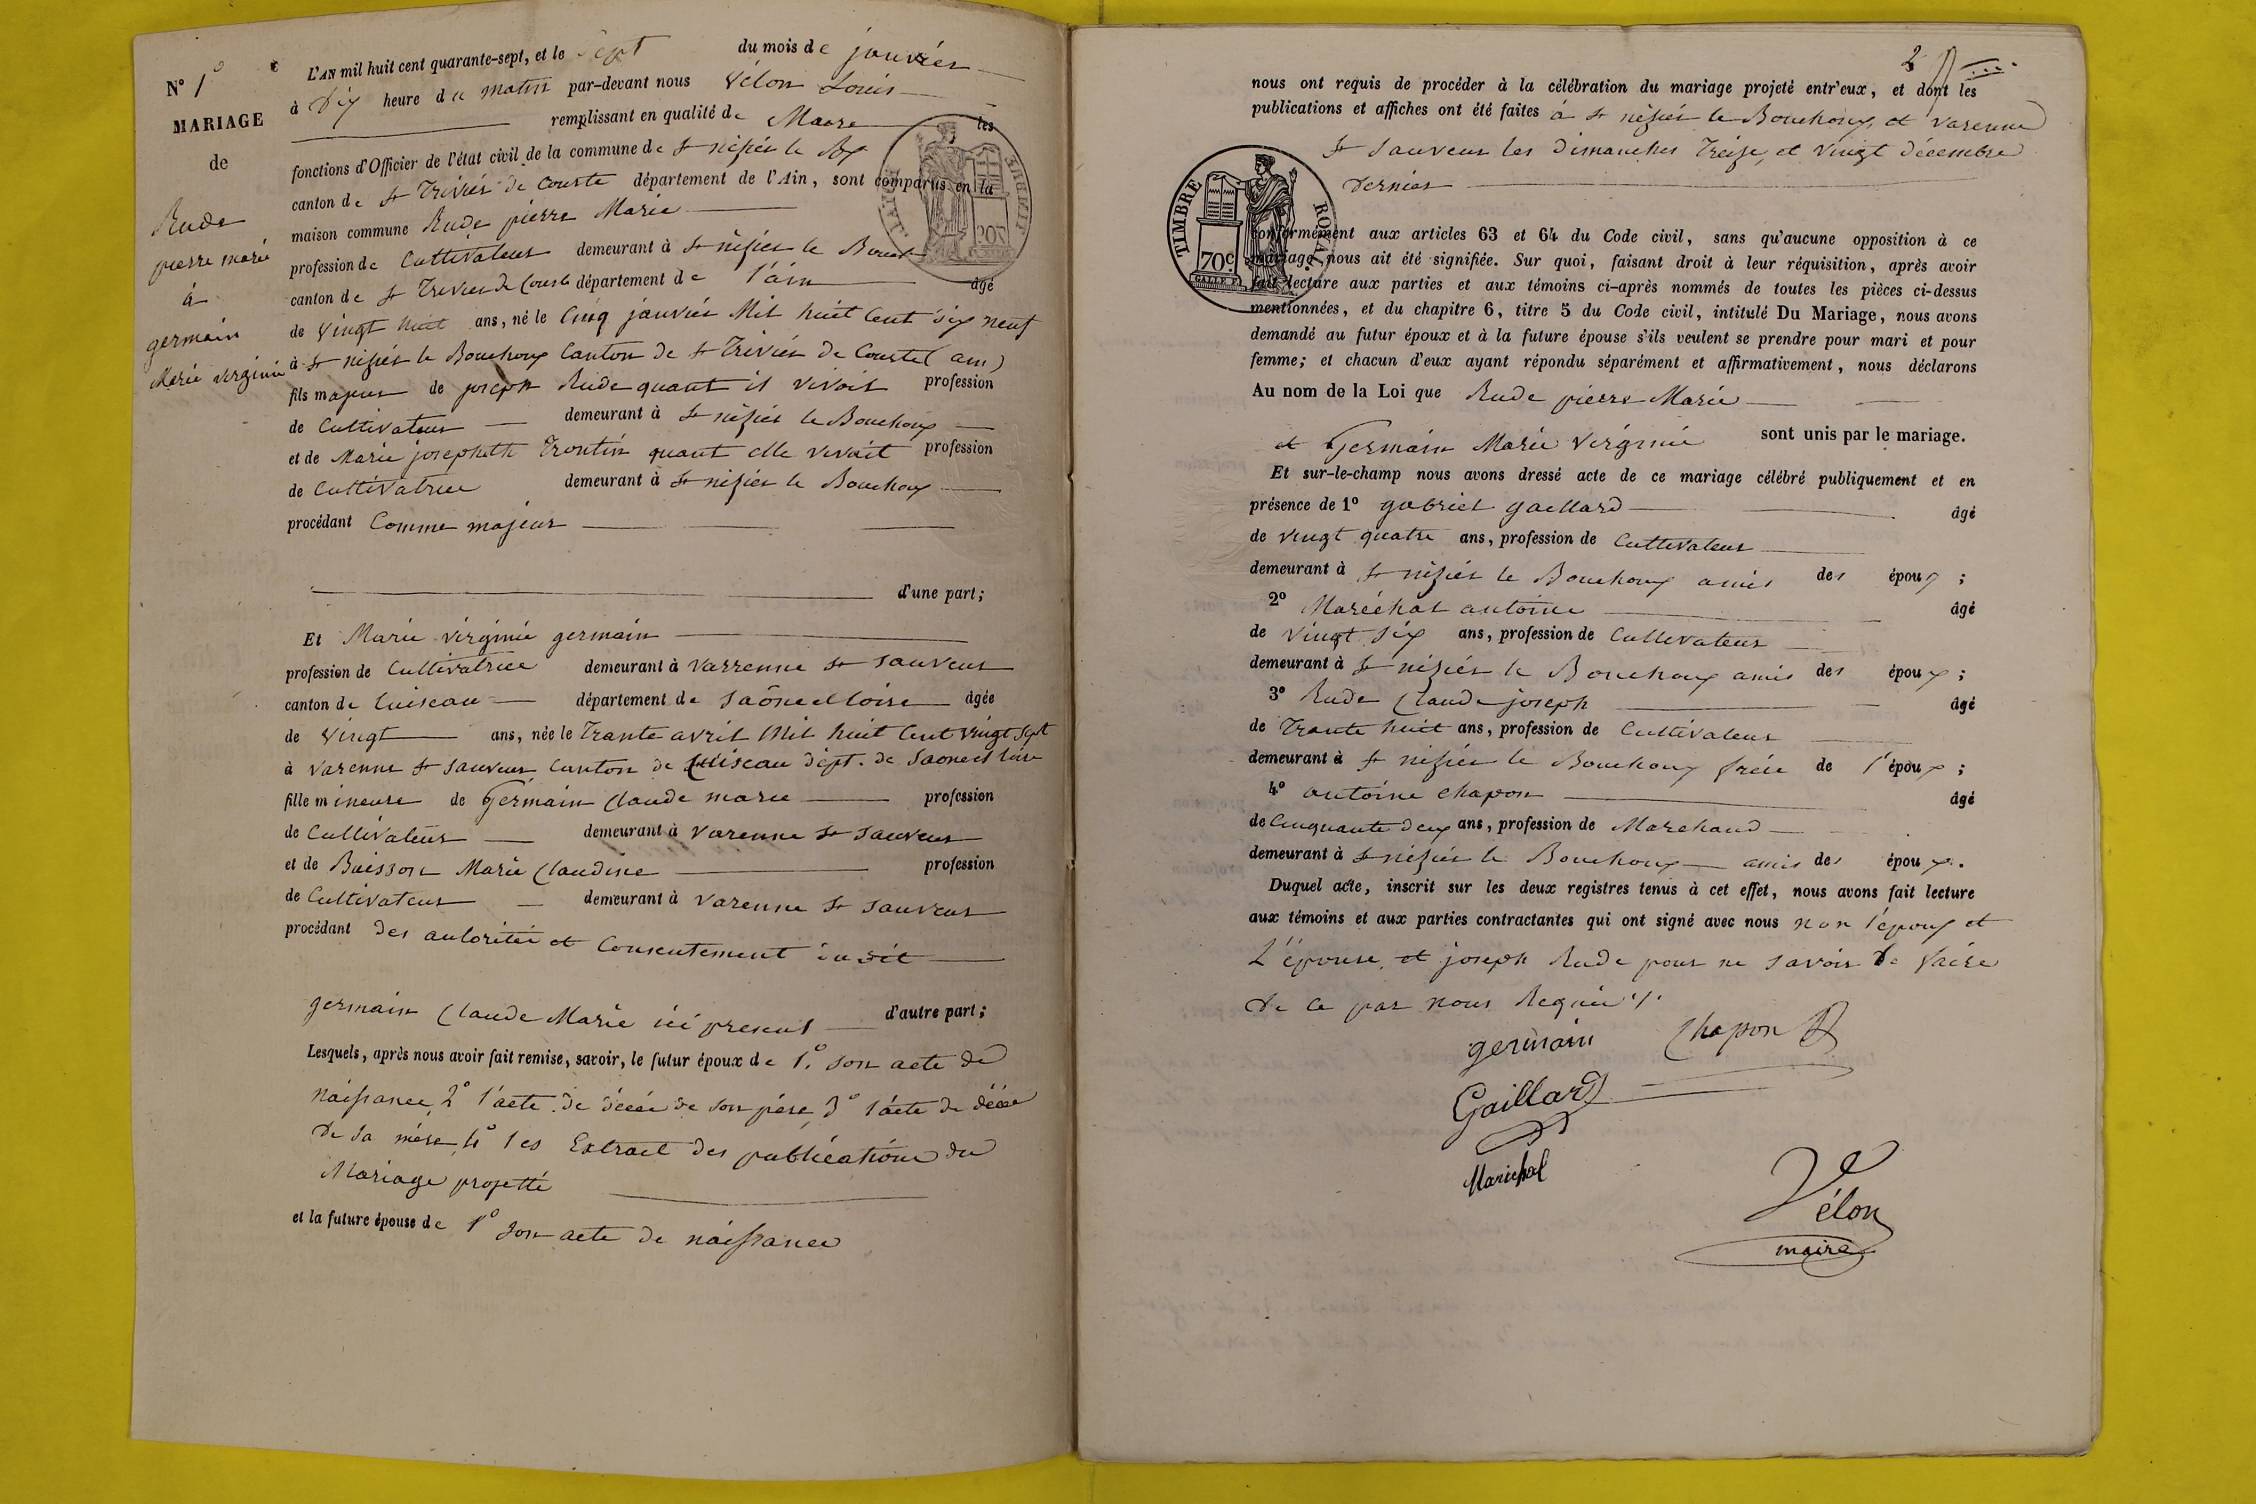 N° 1°
MARIAGE
de
Rude
pierre marie
à
germain
Marie virginie
L'AN mil huit cent quarante-sept, et le sept du mois de janvier
à Dix heure du matin par-devant nous Vélon Louis
remplissant en qualité de Maire les
fonctions d'Officier de l'état civil de la commune de St nizier le Bx
canton de St Trivier de Courte département de l'Ain, sont comparus en la
maison commune Rude pierre Marie
profession de Cultivateur demeurant à St nizier le Bouch
canton de St Trivier de Courte département de l'ain âgé
de Vingt huit ans, né le Cinq janvier Mil huit Cent dix neuf
à St nizier le Bouchoux Canton de St Trivier de Courte (ain)
fils majeur de joseph Rude quant il vivoit profession
de Cultivateur demeurant à St nizier le Bouchoux
et de Marie josephth Trontin quant elle vivait profession
de Cultivatrice demeurant à St nizier le Bouchoux
procédant Comme majeur
d'une part;
Et Marie virginie germain
profession de Cultivatrice demeurant à varrenne St sauveur
canton de Cuiseau département de saône et loire âgée
de Vingt ans, née le Trante avril Mil huit Cent vingt sept
à varenne St sauveur Canton de Cuiseau dépt. de saone et loire
fille mineure de Germain Claude marie profession
de Cultivateur demeurant à varenne St sauveur
et de Buisson Marie Claudine profession
de Cultivateur demeurant à varenne St sauveur
procédant des autorité et Consentement dudit
germain Claude Marie ici present d'autre part;
Lesquels, après nous avoir fait remise, savoir, le futur époux de 1.° son acte de
naissance, 2° l'acte de décée de son père, 3° l'acte de décée
de sa mère, 4° les Extrait des publications du
Mariage projetté
et la future épouse de 1° son acte de naissance
2
nous ont requis de procéder à la célébration du mariage projeté entr'eux, et dont les
publications et affiches ont été faites à St nizier le Bouchoux, et varenne
St sauveur les Dimanches Treize, et vingt décembre
dernier
TIMBRE ROYAL
70c
conformément aux articles 63 et 64 du Code civil, sans qu'aucune opposition à ce
mariage nous ait été signifiée. Sur quoi, faisant droit à leur réquisition, après avoir
fait lecture aux parties et aux témoins ci-après nommés de toutes les pièces ci-dessus
mentionnées, et du chapitre 6, titre 5 du Code civil, intitulé Du Mariage, nous avons
demandé au futur époux et à la future épouse s'ils veulent se prendre pour mari et pour
femme; et chacun d'eux ayant répondu séparément et affirmativement, nous déclarons
Au nom de la Loi que Rude pierre Marie
et Germain Marie virginie sont unis par le mariage.
Et sur-le-champ nous avons dressé acte de ce mariage célébré publiquement et en
présence de 1° gabriel gaillard âgé
de vingt quatre ans, profession de Cultivateur
demeurant à St nizier le Bouchoux amis des époux ;
2° Maréchal antoine âgé
de vingt six ans, profession de Cultivateur
demeurant à St nizier le Bouchoux amis des époux ;
3° Rude Claude joseph âgé
de Trante huit ans, profession de Cultivateur
demeurant à St nizier le Bouchoux frére de l'époux ;
4° antoine chapon âgé
de Cinquante deux ans, profession de Marchand
demeurant à St nizier le Bouchoux amis des époux.
Duquel acte, inscrit sur les deux registres tenus à cet effet, nous avons fait lecture
aux témoins et aux parties contractantes qui ont signé avec nous non l'époux et
L'épouse, et joseph Rude pour ne savoir de faire
de ce par nous Requis
germain Chapon
Gaillard
Marichal
Vélon
maire